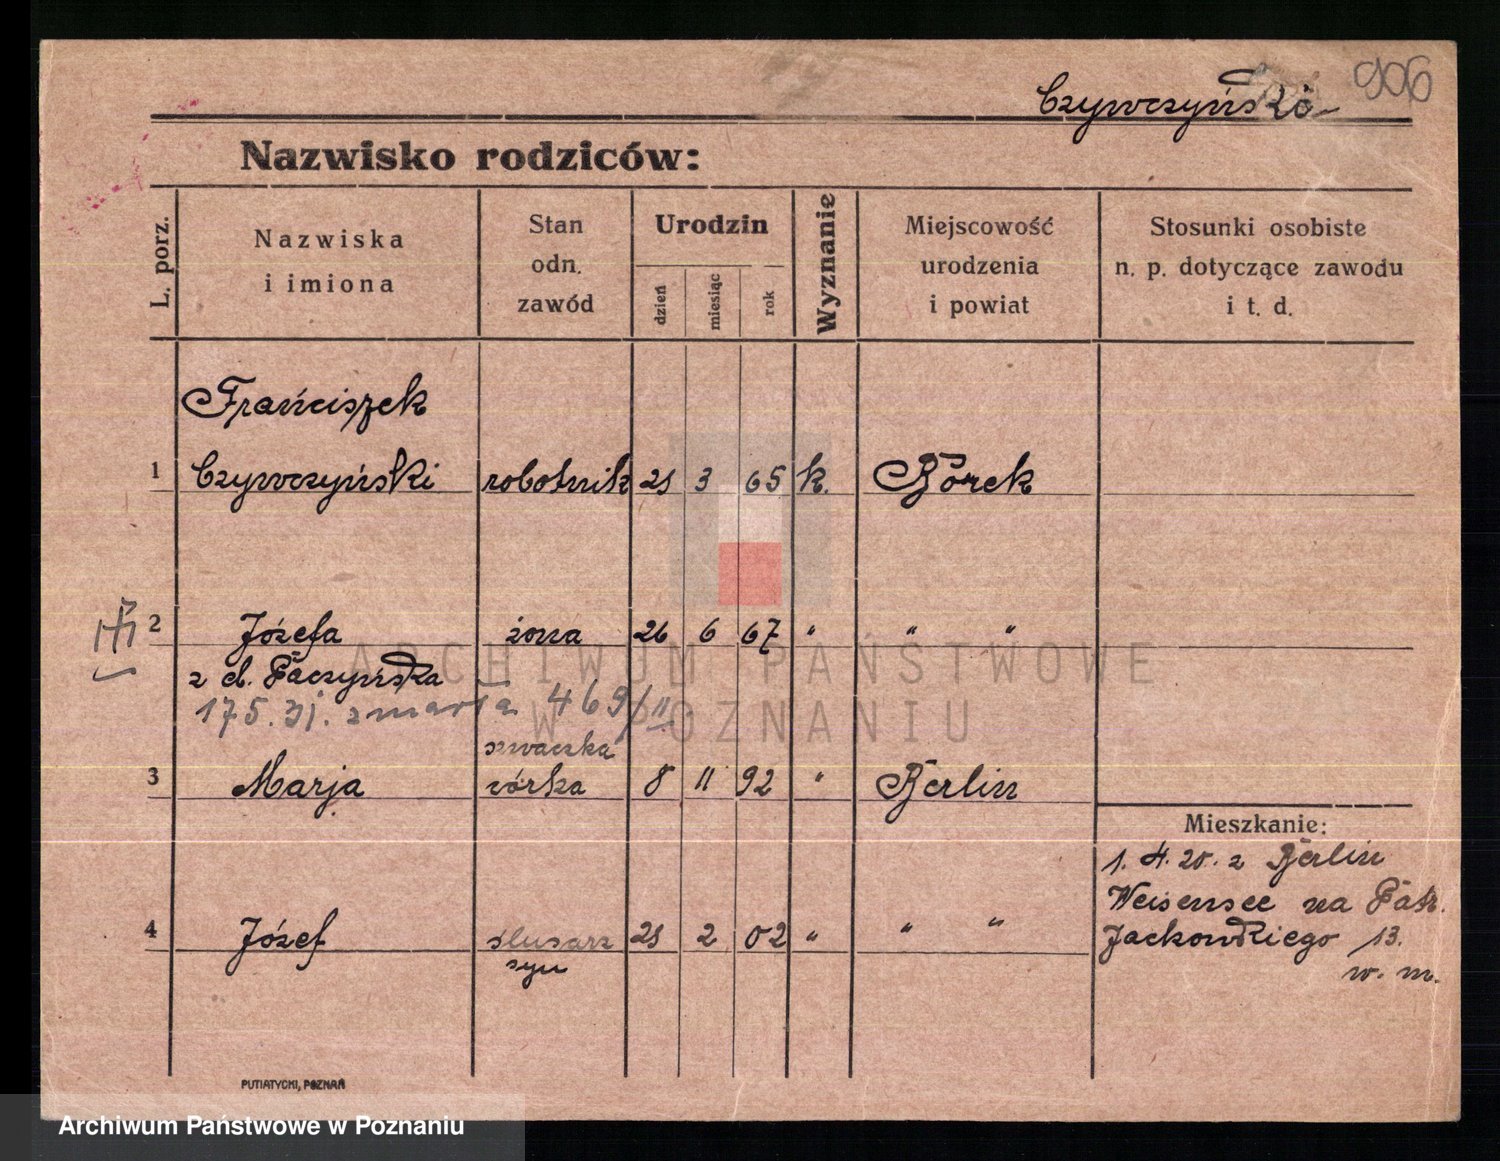 906
Czywczyński
Nazwisko rodziców:
L. porz.
Nazwiska
i imiona
Stan
odn.
zawód
Urodzin
dzień
miesiąc
rok
Wyznanie
Miejscowość
urodzenia
i powiat
Stosunki osobiste
n. p. dotyczące zawodu
i t. d.
Franciszek
1 Czywczyński robotnik 21 3 65 k. Borek
2 Józefa żona 26 6 67 " " "
z d. Paczyńska
17 5. 31. zmarła 469/II
szwaczka
3 Marja córka 8 11 92 " Berlin
Mieszkanie:
1. 4. 20. z Berlin
Weisensee na Patr.
Jackowskiego 13.
w. m.
4 Józef ślusarz 21 2 02 " " "
syn
PUTIATYCKI, POZNAŃ
ARCHIWUM PAŃSTWOWE
W POZNANIU
Archiwum Państwowe w Poznaniu